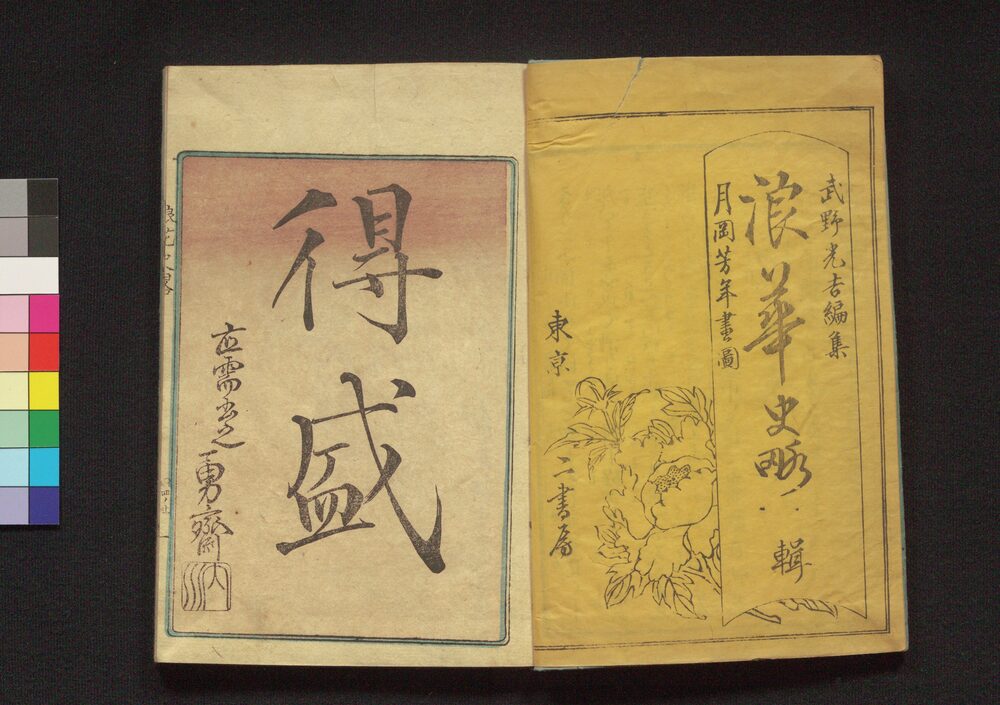 武野光吉編集
浪華史略 二輯
月岡芳年畫圖
東京
二書房
得盛
應需書之
勇齋